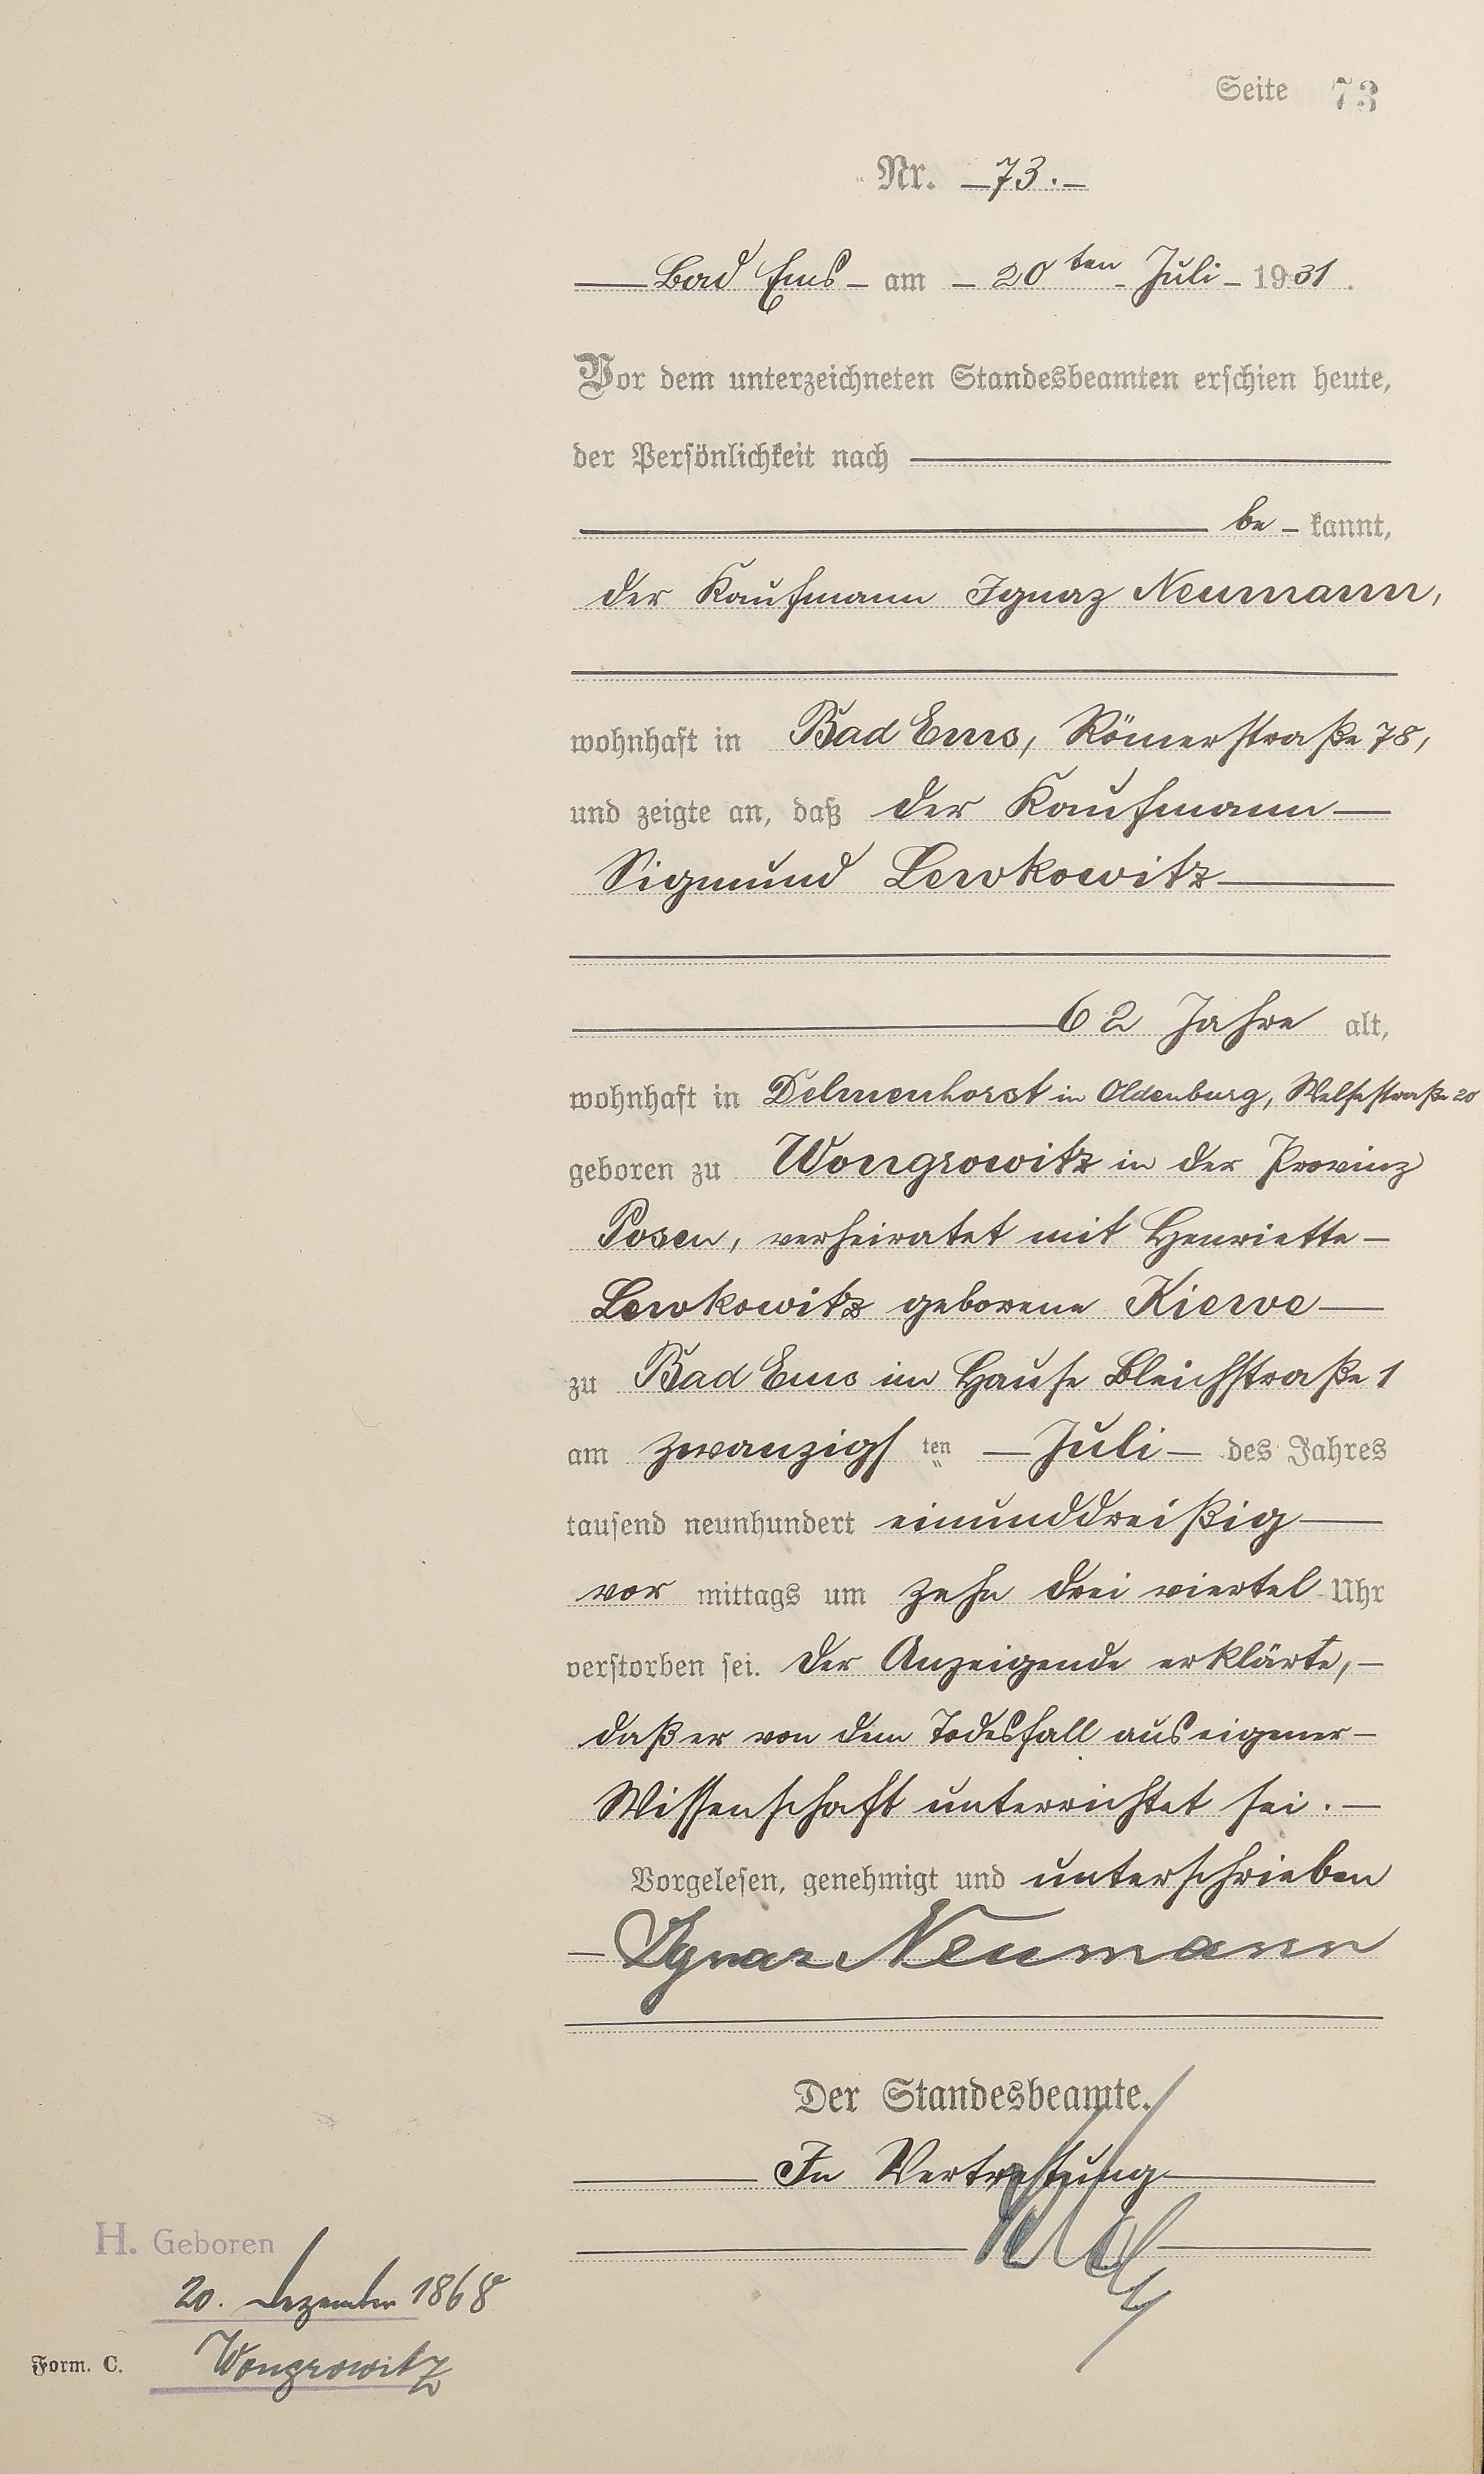 Seite 73
Nr. 73.
Bad Ems am 20ten Juli 1931.
Vor dem unterzeichneten Standesbeamten erschien heute,
der Persönlichkeit nach
be - kannt,
der Kaufmann Ignaz Neumann,
wohnhaft in Bad Ems, Römerstraße 78,
und zeigte an, daß der Kaufmann
Sigmund Lewkowitz
62 Jahre alt,
wohnhaft in Delmenhorst in Oldenburg, Welfestraße 20
geboren zu Wongrowitz in der Provinz
Posen, verheiratet mit Henriette
Lewkowitz geborene Kierve
zu Bad Ems im Hause Bleichstraße 1
am zwanzigsten Juli des Jahres
tausend neunhundert einunddreißig
vor mittags um zehn drei viertel Uhr
verstorben sei. Der Anzeigende erklärte,
daß er von dem Todesfall aus eigener
Wissenschaft unterrichtet sei.
Vorgelesen, genehmigt und unterschrieben
Ignaz Neumann
Der Standesbeamte.
In Vertretung
H. Geboren
20. Dezember 1868
Wongrowitz
Form. C.